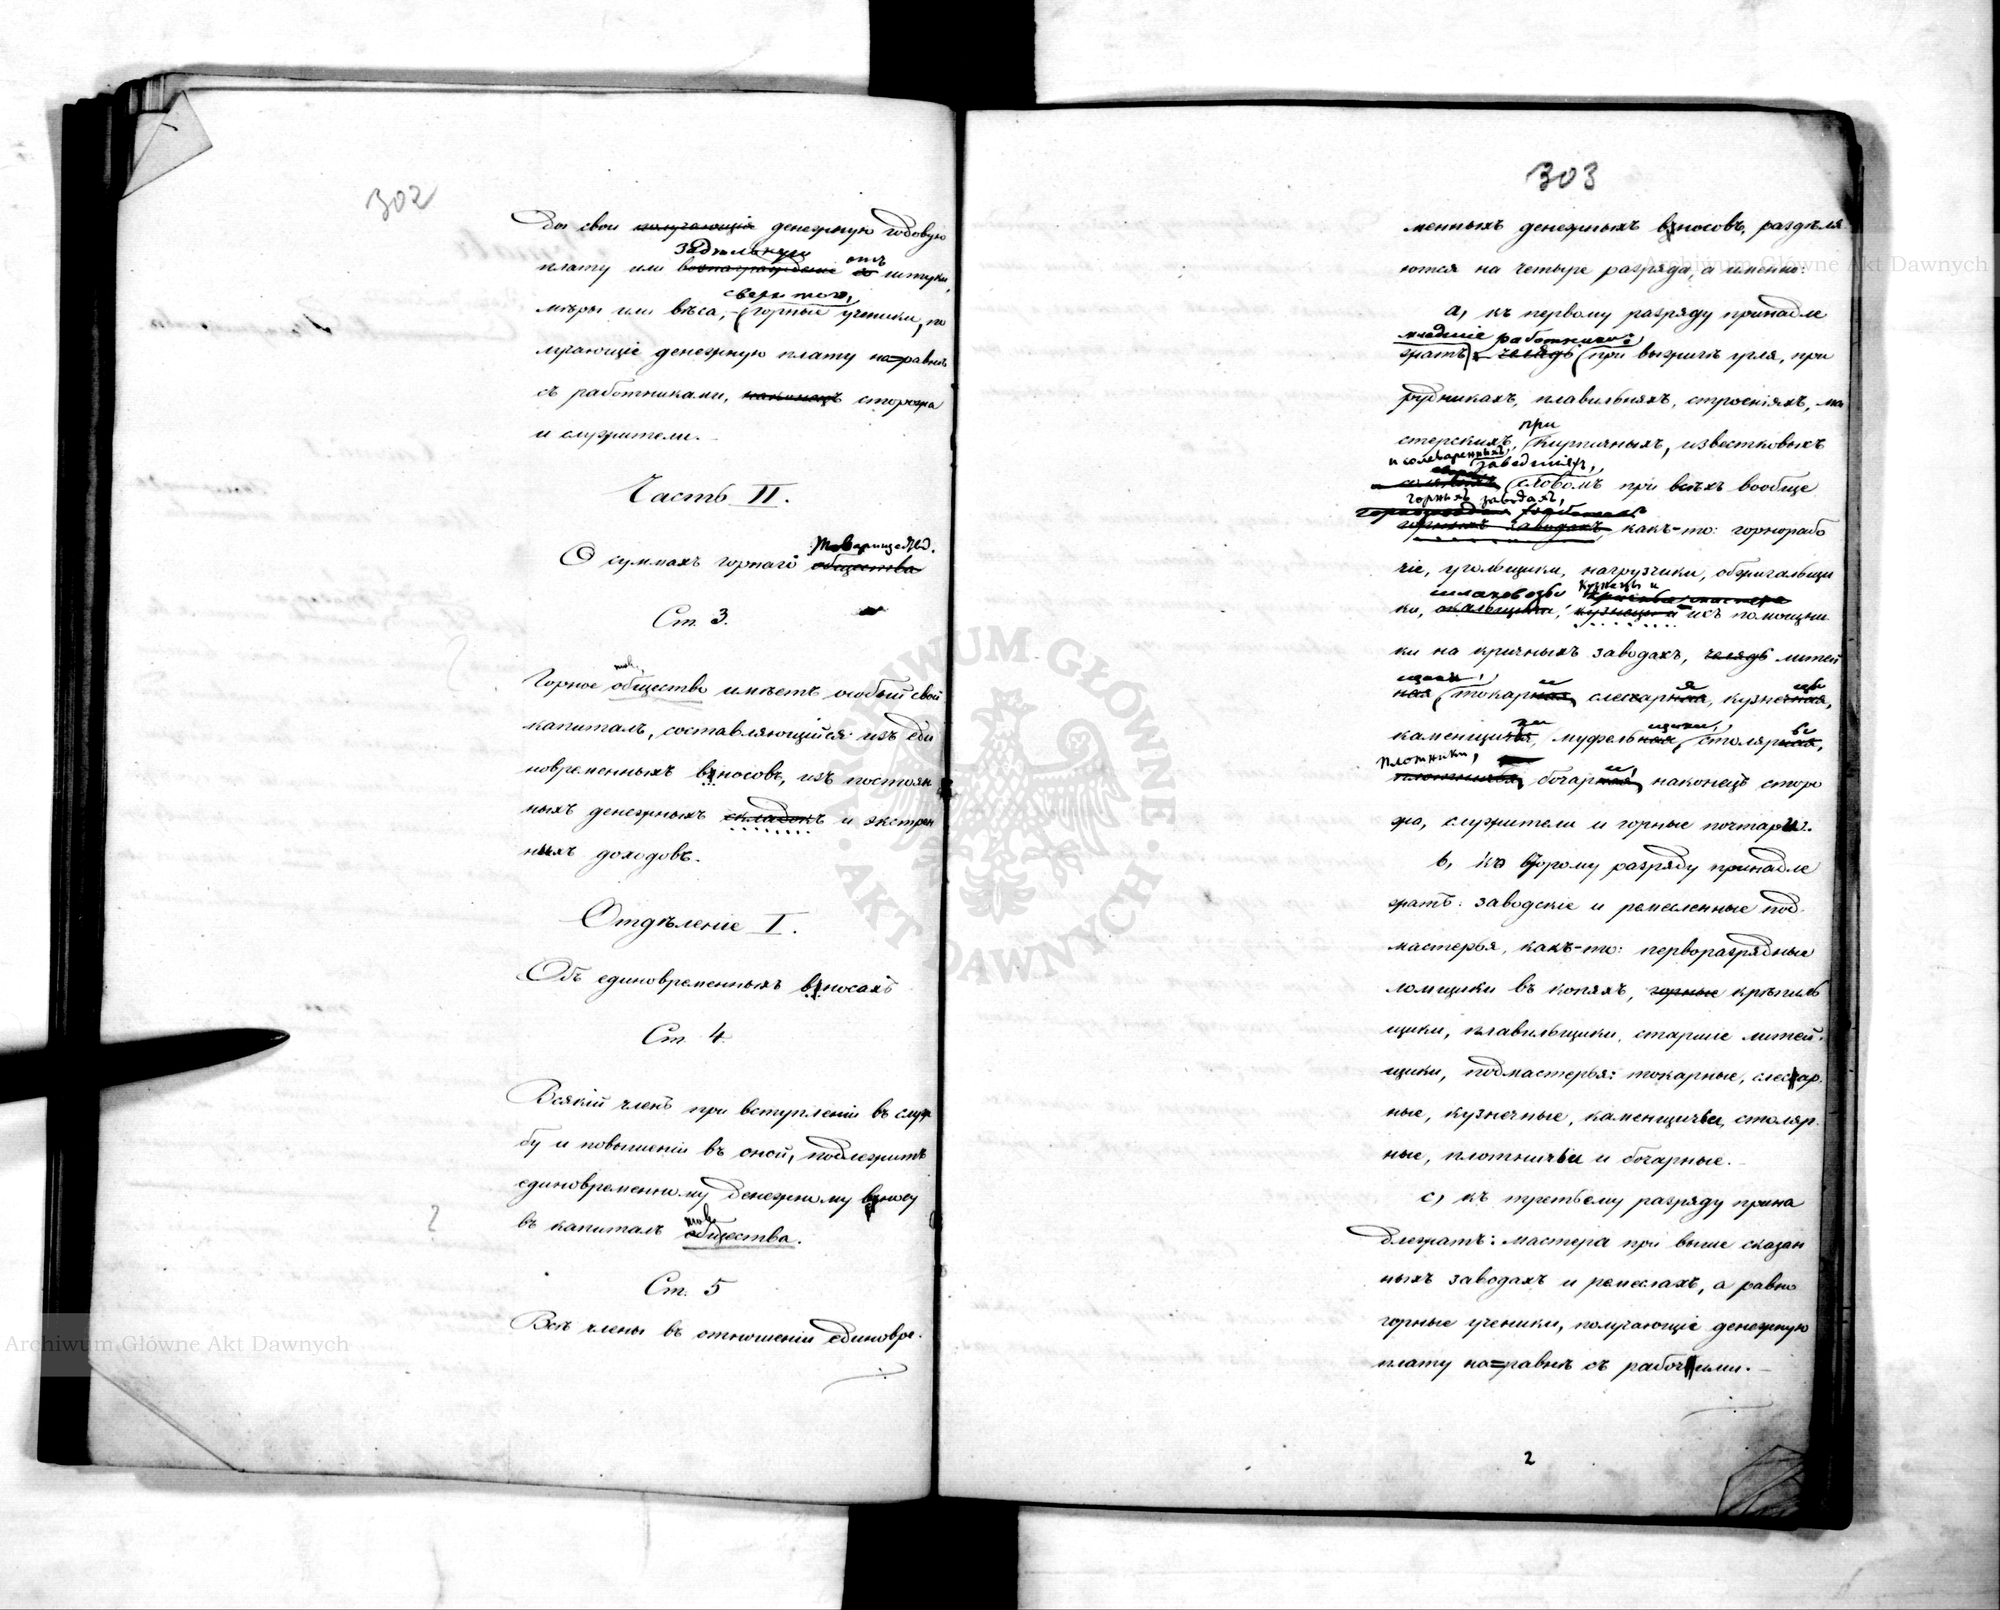 302
ды свои получающіе денежную годовую
задѣльную отъ
плату или вознагражденіе со штуки,
сверхъ того,
мѣры или вѣса, горные ученики, по
лучающіе денежную плату на=равнѣ
съ работниками, наконецъ сторожа
и служители.
Часть II.
Товарищества.
О суммахъ горнаго общества
Ст. 3.
тов.
Горное общество имѣетъ особый свой
капиталъ, составляющійся изъ еди
новременныхъ взносовъ, изъ постоян
ныхъ денежныхъ складокъ и экстрен
ныхъ доходовъ.
Отдѣленіе I.
Объ единовременныхъ взносахъ
Ст. 4.
Всякій членъ при вступленіи въ служ
бу и повышеніи въ оной, подлежитъ
единовременному денежному взносу
тов.
въ капиталъ общества.
Ст. 5
Всѣ члены въ отношеніи единовре-
303
менныхъ денежныхъ взносовъ, раздѣля
ются на четыре разряда, а именно:
а, къ первому разряду принадле
младшіе работники:
жатъ: челядь при выжигѣ угля, при
рудникахъ, плавильняхъ, строеніяхъ, ма
при
стерскихъ, кирпичныхъ, известковыхъ
и солеваренныхъ заведеніяхъ,
словомъ при всѣхъ вообще
горныхъ заводахъ,
горныхъ заводахъ какъ-то: горнорабо
чіе, угольщики, нагрузчики, обжигальщи
шлаковозы кузнецы и
ки, кузнецы и ихъ помощни
ки на кричныхъ заводахъ, челядь литей
щики,
ная, токарная, слесарная, кузнечная,
каменщичья, муфельная, столярная,
плотники,
плотничья, бочарная, наконецъ сторо
жа, служители и горные почтари.
b, ко второму разряду принадле
жатъ: заводскіе и ремесленные под-
мастерья, какъ-то: перворазрядные
ломщики въ копяхъ, горные крѣпиль
щики, плавильщики, старшіе литей-
щики, подмастерья: токарные, слесар-
ные, кузнечные, каменщичьи, столяр-
ные, плотничьи и бочарные.
c, къ третьему разряду прина
длежатъ: мастера при выше сказан
ныхъ заводахъ и ремеслахъ, а равно
горные ученики, получающіе денежную
плату на=равнѣ съ рабочими.
2
Archiwum Główne Akt Dawnych
Archiwum Główne Akt Dawnych
ARCHIWUM GŁÓWNE AKT DAWNYCH